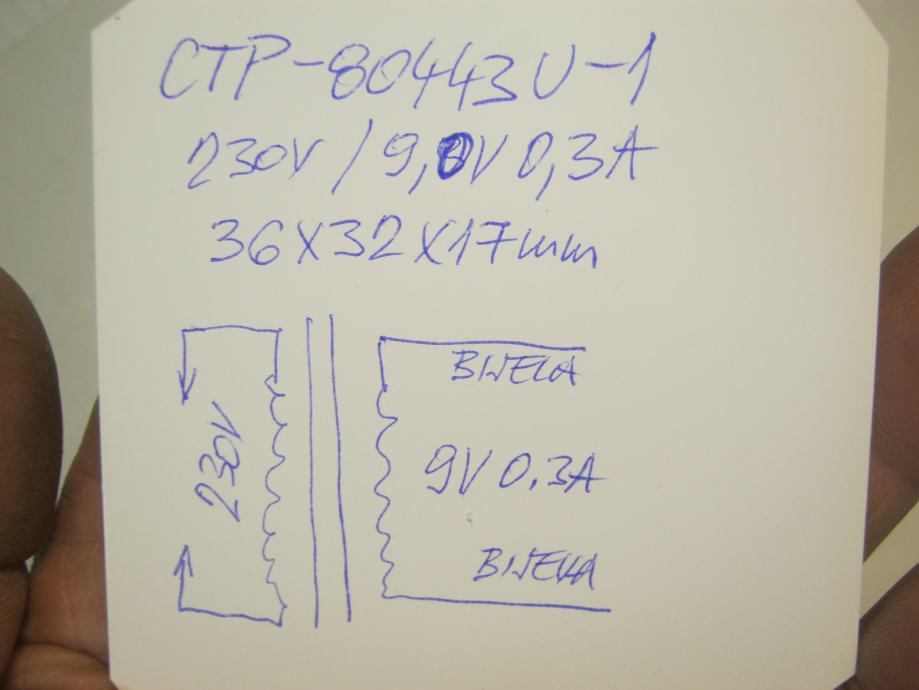 CTP-80443U-1
230V / 9,0V 0,3A
36X32X17mm
BIJELA
230V
9V 0.3A
BIJELA